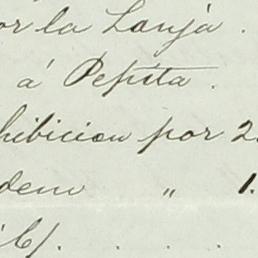 or la Lonja.
á Pepita.
hibicion por 2
dem " 1.